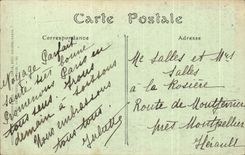 Carte Postale
Correspondance
Voyage Parfait
Santé très bonne
Promenons Paris en
tous sens Irons
demain à Soissons
Vous embrassons
tous tous
Juliette
Mr Salles et Mme
Salles
à la Rosière
Route de Montferrier
près Montpellier
Hérault